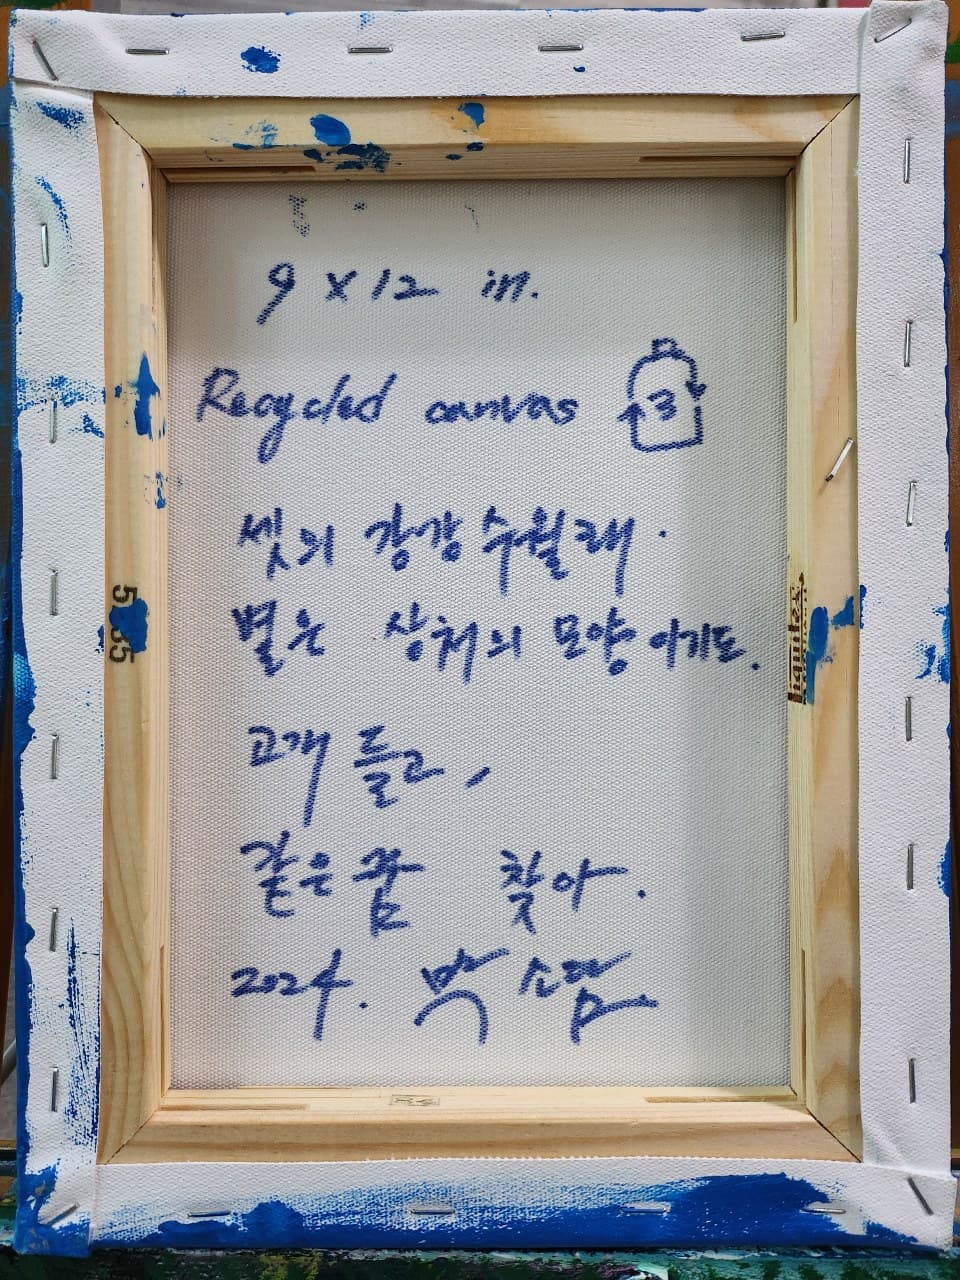 9 x 12 in.
Recycled canvas 3
셋의 강강수월래.
별은 상처의 모양이기도.
고개 들고,
같은 꿈 찾아.
2024. 박소담
liquitex